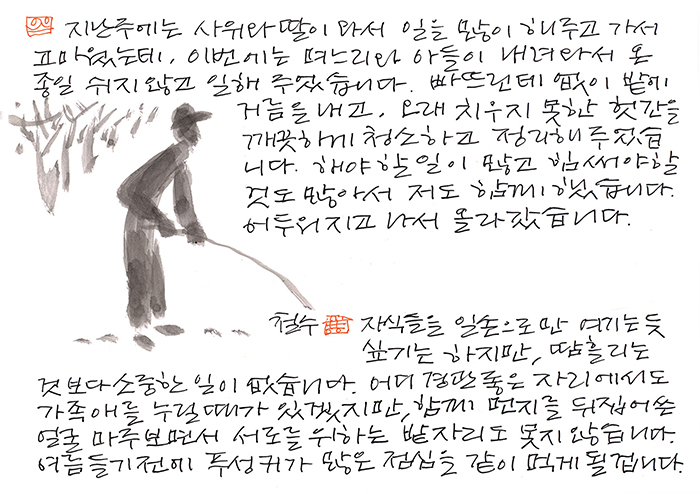 지난주에는 사위와 딸이 와서 일을 많이 해주고 가서
고마웠는데, 이번에는 며느리와 아들이 내려와서 온
종일 쉬지 않고 일해 주었습니다. 빠뜨린데 없이 밭에
거름을 내고, 오래 치우지 못한 헛간을
깨끗하게 청소하고 정리해 주었습
니다. 해야 할 일이 많고 힘써야 할
것도 많아서 저도 함께 했습니다.
어두워지고 나서 올라갔습니다.
철수 자식들을 일손으로만 여기는 듯
싶기는 하지만, 땀흘리는
것보다 소중한 일이 없습니다. 어디 경관 좋은 자리에서도
가족애를 누릴 때가 있겠지만, 함께 먼지를 뒤집어쓴
얼굴 마주보면서 서로를 위하는 밭자리도 못지 않습니다.
여름 들기 전에 푸성귀가 많은 점심을 같이 먹게 될겁니다.